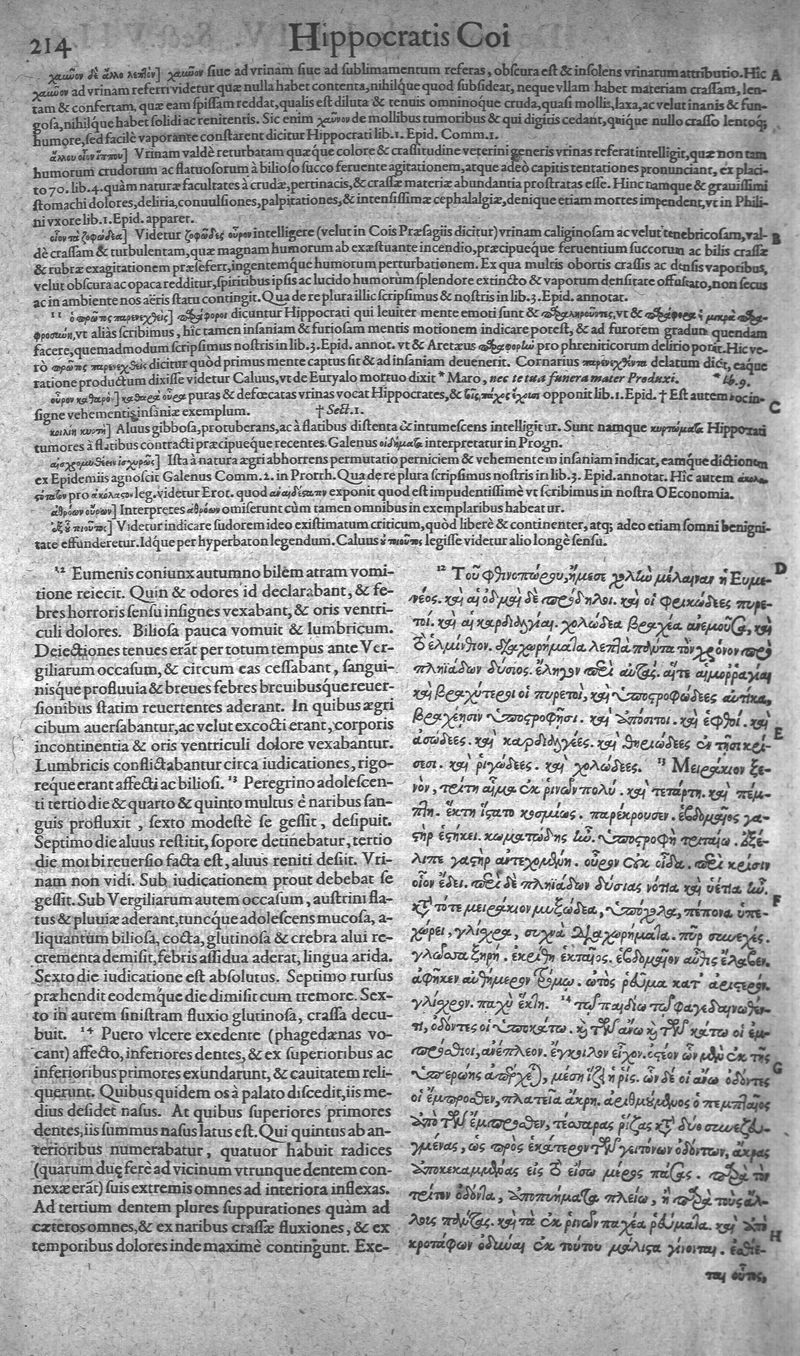 214
Hippocratis Coi
χαῦνον δὲ ἄλλο λεπτὸν] χαῦνον siue ad vrinam siue ad sublimamentum referas, obscura est & insolens vrinarum attributio. Hic A
χαῦνον ad vrinam referri videtur quæ nulla habet contenta, nihilque quod subsideat, neque vllam habet materiam crassam, len-
tam & confertam, quæ eam spissam reddat, qualis est diluta & tenuis omninoque cruda, quasi mollis, laxa, ac velut inanis & fun-
gosa, nihilque habet solidi ac renitentis. Sic enim χαῦνον de mollibus tumoribus & qui digitis cedant, quique nullo crasso lentoq́;
humore, sed facilè vaporante constarent dicitur Hippocrati lib.1. Epid. Comm.1.
ἄλλου οἷον ἵππου] Vrinam valdè returbatam quæque colore & crassitudine veterini generis vrinas referat intelligit, quæ non tam
humorum crudorum ac flatuosorum à bilioso succo feruente agitationem, atque adeò capitis tentationes pronunciant, ex placi-
to 70. lib.4. quàm naturæ facultates à crudæ, pertinacis, & crassæ materiæ abundantia prostratas esse. Hinc namque & grauissimi
stomachi dolores, deliria, conuulsiones, palpitationes, & intensissimæ cephalalgiæ, denique etiam mortes impendent, vt in Phili-
ni vxore lib.1. Epid. apparet.
οἷον τὰ ζοφώδεα] Videtur ζοφῶδες οὖρον intelligere (velut in Cois Præsagiis dicitur) vrinam caliginosam ac velut tenebricosam, val- B
dè crassam & turbulentam, quæ magnam humorum ab exæstuante incendio, præcipueque feruentium succorum ac bilis crassæ
& rubræ exagitationem præsefert, ingentemque humorum perturbationem. Ex qua multis obortis crassis ac densis vaporibus,
velut obscura ac opaca redditur, spiritibus ipsis ac lucido humorum splendore extincto & vaporum densitate offustato, non secus
ac in ambiente nos aëris statu contingit. Qua de re plura illic scripsimus & nostris in lib.3. Epid. annotar.
11 ὁ πρῶτος παρενεχθείς] παράφοροι dicuntur Hippocrati qui leuiter mente emoti sunt & παραληροῦντες, vt & παράφορα ἢ μικρὰ παρα-
φροσύνη, vt aliàs scribimus, hic tamen insaniam & furiosam mentis motionem indicare potest, & ad furorem gradum quendam
facere, quemadmodum scripsimus nostris in lib.3. Epid. annot. vt & Aretæus pro phreniticorum delirio ponit. Hic ve-
rò πρῶτος παρενεχθεὶς dicitur quòd primus mente captus sit & ad insaniam deuenerit. Cornarius παρενεχθέντα delatum dicit, eaque
ratione productum dixisse videtur Caluus, vt de Euryalo mortuo dixit * Maro, nec te tua funera mater Produxi. * lib.9.
οὖρον καθαρόν] καθαρὰ οὖρα puras & defœcatas vrinas vocat Hippocrates, & τοῖς πάχος ἔχουσι opponit lib.1. Epid. † Est autem hoc in- C
signe vehementis insaniæ exemplum. † Sect.1.
κοιλίη κυρτή] Aluus gibbosa, protuberans, ac à flatibus distenta & intumescens intelligitur. Sunt namque κυρτώματα Hippocrati
tumores à flatibus contracti præcipueque recentes. Galenus οἰδήματα interpretatur in Progn.
αἰσχρομυθέειν ἰσχυρῶς] Ista à natura ægri abhorrens permutatio perniciem & vehementem insaniam indicat, eamque dictionem
ex Epidemiis agnoscit Galenus Comm.2. in Prorrh. Qua de re plura scripsimus nostris in lib.3. Epid. annotat. Hic autem ἀκολα-
στότατον pro ἀκόλαστον leg. videtur Erot. quod ἀναιδέστατον exponit quod est impudentissimè vt scribimus in nostra OEconomia.
ἀθρόων οὔρων] Interpretes ἀθρόων omiserunt cùm tamen omnibus in exemplaribus habeatur.
Videtur indicare sudorem ideo existimatum criticum, quòd liberè & continenter, atq; adeo etiam somni benigni-
tate effunderetur. Idque per hyperbaton legendum. Caluus legisse videtur alio longè sensu.
12 Eumenis coniunx autumno bilem atram vomi-
tione reiecit. Quin & odores id declarabant, & fe-
bres horroris sensu insignes vexabant, & oris ventri-
culi dolores. Biliosa pauca vomuit & lumbricum.
Deiectiones tenues erāt per totum tempus ante Ver-
giliarum occasum, & circum eas cessabant, sangui-
nisque profluuia & breues febres breuibusque reuer-
sionibus statim reuertentes aderant. In quibus ægri
cibum auersabantur, ac velut excocti erant, corporis
incontinentia & oris ventriculi dolore vexabantur.
Lumbricis conflictabantur circa iudicationes, rigo-
reque erant affecti ac biliosi. 13 Peregrino adolescen-
ti tertio die & quarto & quinto multus è naribus san-
guis profluxit, sexto modestè se gessit, desipuit.
Septimo die aluus restitit, sopore detinebatur, tertio
die morbi reuersio facta est, aluus reniti desiit. Vri-
nam non vidi. Sub iudicationem prout debebat se
gessit. Sub Vergiliarum autem occasum, austrini fla-
tus & pluuiæ aderant, tuncque adolescens mucosa, a-
liquantum biliosa, cocta, glutinosa & crebra alui re-
crementa demisit, febris assidua aderat, lingua arida.
Sexto die iudicatione est absolutus. Septimo rursus
præhendit eodemque die dimisit cum tremore. Sex-
to in aurem sinistram fluxio glutinosa, crassa decu-
buit. 14 Puero vlcere exedente (phagedænas vo-
cant) affecto, inferiores dentes, & ex superioribus ac
inferioribus primores exundarunt, & cauitatem reli-
querunt. Quibus quidem os à palato discedit, iis me-
dius desidet nasus. At quibus superiores primores
dentes, iis summus nasus latus est. Qui quintus ab an-
terioribus numerabatur, quatuor habuit radices
(quarum duę fere ad vicinum vtrunque dentem con-
nexæ erāt) suis extremis omnes ad interiora inflexas.
Ad tertium dentem plures suppurationes quàm ad
cæteros omnes, & ex naribus crassæ fluxiones, & ex
temporibus dolores inde maximè contingunt. Exe-
12 Τοῦ φθινοπώρου, ἤμεσε χολὴν μέλαιναν ἡ Εὐμε- D
νέος. καὶ αἱ ὀδμαὶ δὲ πρόδηλοι. καὶ οἱ φρικώδεες πυρε-
τοί. καὶ αἱ καρδιαλγίαι. χολώδεα βραχέα ἀνεμοῦσα, καὶ
τὸ ἑλμίνθιον. διαχωρήματα λεπτὰ πάντα τὸν χρόνον πρὸ
πληϊάδων δύσιος. ἔληγον περὶ αὐτάς. αἵτε αἱμορραγίαι
καὶ βραχύτεροι οἱ πυρετοὶ, καὶ ὑποστροφώδεες αὐτίκα,
βραχείῃσιν ὑποστροφῇσι. καὶ ἀπόσιτοι. καὶ ἑφθοί. καὶ
ἀσώδεες. καὶ καρδιαλγέες. καὶ θηριώδεες ἐν τῇσι κρί- E
σεσι. καὶ ῥιγώδεες. καὶ χολώδεες. 13 Μειράκιον ξε-
νον, τρίτῃ αἷμα ἐκ ῥινῶν πολύ. καὶ τετάρτῃ. καὶ πέμ-
πτῃ. ἕκτῃ ἵστατο κοσμίως. παρέκρουσεν. ἑβδομαῖος γα-
στὴρ ἑστήκει. κωματώδης ἦν. ὑποστροφὴ τριταίῳ. ἐξέ-
λιπε γαστὴρ ἀντεχομένη. οὖρον οὐκ οἶδα. περὶ κρίσιν
οἷον ἔδει. περὶ δὲ πληϊάδων δύσιας νότια καὶ ὑέτια ἦν. F
καὶ τότε μειράκιον μυξώδεα, ὑπόχολα, πέπονα ὑπε-
χώρει, γλίσχρα, συχνὰ διαχωρήματα. πῦρ συνεχές.
γλῶσσα ξηρή. ἐκρίθη ἑκταῖος. ἑβδομαῖον αὖθις ἔλαβεν.
ἀφῆκεν αὐθήμερον τρόμῳ. ὠτὸς ῥεῦμα κατ᾽ ἀριστερόν.
γλίσχρον. παχὺ ἕκτῃ. 14 τῷ παιδίῳ τῷ φαγεδαινωθέν-
τι, ὀδόντες οἱ ὑποκάτω. καὶ τῶν ἄνω καὶ τῶν κάτω οἱ ἐμ-
προσθιοι, ἀνέπλεον. ἔγκοιλον εἶχον. ὀστέον ὧν μὲν ἐκ τῆς G
ὑπερῴης ἀπέρχεται, μέση ἵζει ἡ ῥίς. ὧν δὲ οἱ ἄνω ὀδόντες
οἱ ἔμπροσθεν, πλατεῖα ἄκρη. ἀριθμεύμενος ὁ πεμπταῖος
ἀπὸ τῶν ἔμπροσθεν, τέσσαρας ῥίζας καὶ δύο συνεζευ-
γμένας, ὡς πρὸς ἑκάτερον τῶν γειτόνων ὀδόντων, ἄκρας
ἀποκεκαμμένας εἰς τὸ εἴσω μέρος πάσας. παρὰ τὸν
τρίτον ὀδόντα, ἀποπυήματα πλείω, ἢ παρὰ τοὺς ἄλ-
λους πάντας. καὶ τὰ ἐκ ῥινῶν παχέα ῥεύματα. καὶ ἀπὸ H
κροτάφων ὀδύναι ἐκ τούτου μάλιστα γίνονται. ἐσθίε-
ται οὗτος,